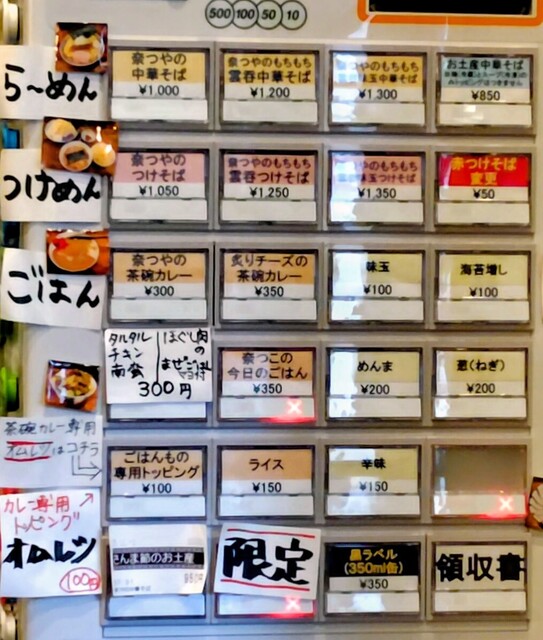 500 100 50 10
ら〜めん
奈つやの
中華そば
¥1,000
奈つやのもちもち
雲呑中華そば
¥1,200
奈つやのもちもち
味玉中華そば
¥1,300
お土産中華そば
¥850
つけめん
奈つやの
つけそば
¥1,050
奈つやのもちもち
雲呑つけそば
¥1,250
味玉つけそば
¥1,350
赤つけそば
変更
¥50
ごはん
奈つやの
茶碗カレー
¥300
炙りチーズの
茶碗カレー
¥350
味玉
¥100
海苔増し
¥100
タルタル
チキン
南蛮
ほぐし肉
の
まぜごはん
マヨ付
300円
奈つこの
今日のごはん
¥350
めんま
¥200
葱(ねぎ)
¥200
茶碗カレー専用
オムレツはコチラ
ごはんもの
専用トッピング
¥100
ライス
¥150
辛味
¥150
カレー専用
トッピング
オムレツ
100円
さんま節のお土産
限定
黒ラベル
(350ml缶)
¥350
領収書